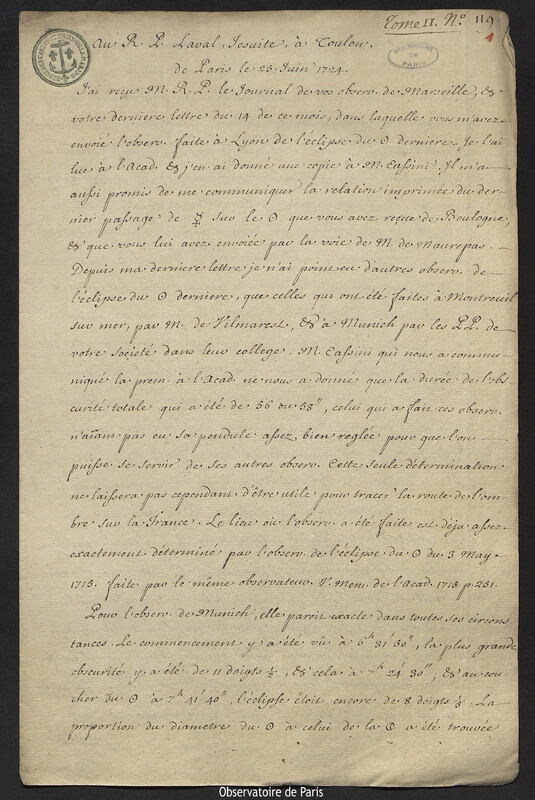 Tome II. N.º 119
1
Au R. P. Laval, Jesuite, à Toulon.
OBSERVATOIRE DE PARIS
de Paris le 25 Juin 1724.
J'ai reçu M. R. P. le Journal de vos observ. de Marseille, &
votre derniere lettre du 14 de ce mois, dans laquelle vous m'avez
envoïé l'observ. faite à Lyon de l'éclipse du ☉ derniere. Je l'ai
lue à l'Acad. & j'en ai donné une copie à M. Cassini. Il m'a
aussi promis de me communiquer la relation imprimée du der-
nier passage de ☿ sur le ☉ que vous avez reçue de Boulogne,
& que vous lui avez envoïée par la voie de M. de Maurepas.
Depuis ma derniere lettre je n'ai point eu d'autres observ. de
l'éclipse du ☉ derniere, que celles qui ont été faites à Montreuil
sur mer, par M. de Vilmarest, & à Munich par les PP. de
votre société dans leur college. M. Cassini qui nous a commu-
niqué la prem. à l'Acad. ne nous a donné que la durée de l'obs-
curité totale qui a été de 56 ou 58", celui qui a fait ces observ.
n'aïant pas eu sa pendule assez bien reglée pour que l'on
puisse se servir de ses autres observ. Cette seule détermination
ne laissera pas cependant d'être utile pour tracer la route de l'om-
bre sur la France. Le lieu où l'observ. a été faite est déja assez
exactement déterminé par l'observ. de l'éclipse du ☉ du 3 May
1715. faite par le même observateur. V. Mem. de l'Acad. 1715 p. 251.
Pour l'observ. de Munich, elle paroit exacte dans toutes ses circons
tances. Le commencement y a été vû à 6h 31' 50", la plus grande
obscurité y a été de 11 doigts ½, & cela à 7h 24' 30"; & au cou-
cher du ☉ à 7h 41' 40", l'éclipse étoit encore de 8 doigts ⅓. La
proportion du diametre du ☉ à celui de la ☾ a été trouvée
Observatoire de Paris